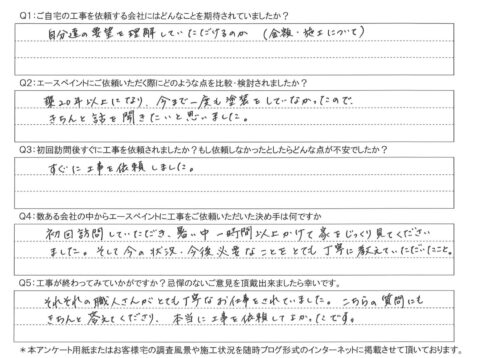 Q1：ご自宅の工事を依頼する会社にはどんなことを期待されていましたか？
自分達の要望を理解していただけるのか （金額・施工について）
Q2：エースペイントにご依頼いただく際にどのような点を比較・検討されましたか？
築20年以上になり、今まで一度も塗装をしていなかったので、
きちんと話を聞きたいと思いました。
Q3：初回訪問後すぐに工事を依頼されましたか？もし依頼しなかったとしたらどんな点が不安でしたか？
すぐに工事を依頼しました。
Q4：数ある会社の中からエースペイントに工事をご依頼いただいた決め手は何ですか
初回訪問していただき、暑い中一時間以上かけて家をじっくり見てください
ました。そして今の状況・今後必要なことをとても丁寧に教えていただいたこと。
Q5：工事が終わってみていかがですか？忌憚のないご意見を頂戴出来ましたら幸いです。
それぞれの職人さんがとても丁寧なお仕事をされていました。こちらの質問にも
きちんと答えてくださり、本当に工事を依頼してよかったです。
＊本アンケート用紙またはお客様宅の調査風景や施工状況を随時ブログ形式のインターネットに掲載させて頂いております。